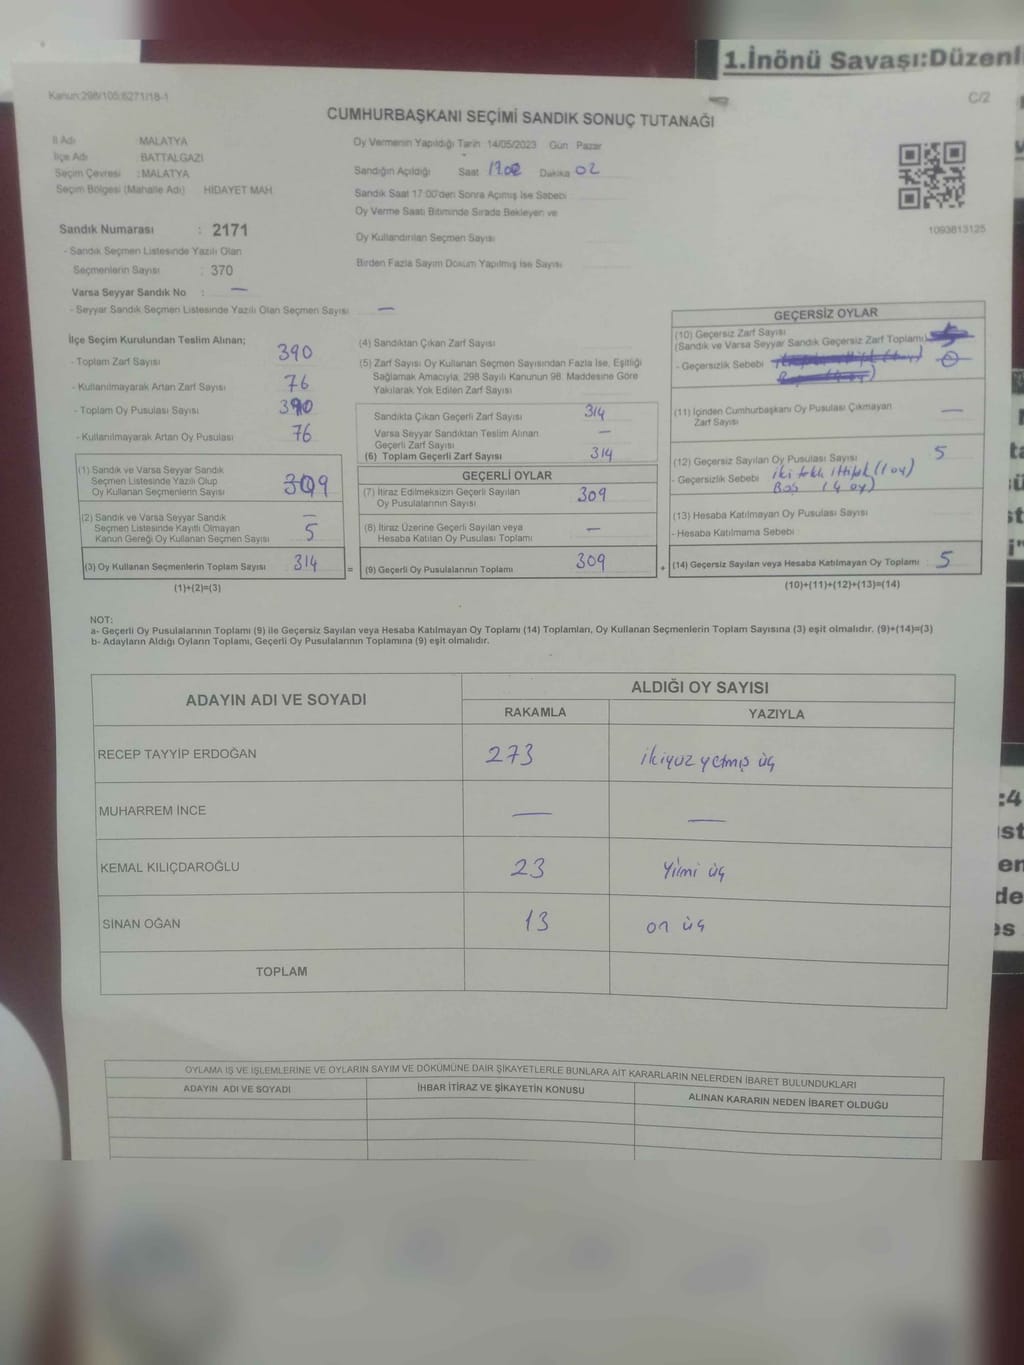 1.İnönü Savaşı:Düzenl
Kanun:298/105;6271/18-1
C/2
CUMHURBAŞKANI SEÇİMİ SANDIK SONUÇ TUTANAĞI
İl Adı MALATYA
İlçe Adı BATTALGAZİ
Seçim Çevresi :MALATYA
Seçim Bölgesi (Mahalle Adı) HİDAYET MAH.
Sandık Numarası : 2171
- Sandık Seçmen Listesinde Yazılı Olan
Seçmenlerin Sayısı : 370
Varsa Seyyar Sandık No : —
- Seyyar Sandık Seçmen Listesinde Yazılı Olan Seçmen Sayısı —
Oy Vermenin Yapıldığı Tarih 14/05/2023 Gün Pazar
Sandığın Açıldığı Saat 17.00 Dakika 02
Sandık Saat 17:00'den Sonra Açımış İse Sebebi
Oy Verme Saati Bitiminde Sırada Bekleyen ve
Oy Kullandırılan Seçmen Sayısı
Birden Fazla Sayım Döküm Yapılmış İse Sayısı
1093813125
İlçe Seçim Kurulundan Teslim Alınan;
- Toplam Zarf Sayısı 390
- Kullanılmayarak Artan Zarf Sayısı 76
- Toplam Oy Pusulası Sayısı 390
- Kullanılmayarak Artan Oy Pusulası 76
(1) Sandık ve Varsa Seyyar Sandık
Seçmen Listesinde Yazılı Olup
Oy Kullanan Seçmenlerin Sayısı 309
(2) Sandık ve Varsa Seyyar Sandık —
Seçmen Listesinde Kayıtlı Olmayan
Kanun Gereği Oy Kullanan Seçmen Sayısı 5
(3) Oy Kullanan Seçmenlerin Toplam Sayısı 314
(1)+(2)=(3)
(4) Sandıktan Çıkan Zarf Sayısı
(5) Zarf Sayısı Oy Kullanan Seçmen Sayısından Fazla İse, Eşitliği
Sağlamak Amacıyla; 298 Sayılı Kanunun 98. Maddesine Göre
Yakılarak Yok Edilen Zarf Sayısı
Sandıkta Çıkan Geçerli Zarf Sayısı 314
Varsa Seyyar Sandıktan Teslim Alınan
Geçerli Zarf Sayısı —
(6) Toplam Geçerli Zarf Sayısı 314
GEÇERLİ OYLAR
(7) İtiraz Edilmeksizin Geçerli Sayılan
Oy Pusulalarının Sayısı 309
(8) İtiraz Üzerine Geçerli Sayılan veya
Hesaba Katılan Oy Pusulası Toplamı —
= (9) Geçerli Oy Pusulalarının Toplamı 309
GEÇERSİZ OYLAR
(10) Geçersiz Zarf Sayısı
(Sandık ve Varsa Seyyar Sandık Geçersiz Zarf Toplamı)
- Geçersizlik Sebebi 0
(11) İçinden Cumhurbaşkanı Oy Pusulası Çıkmayan
Zarf Sayısı —
(12) Geçersiz Sayılan Oy Pusulası Sayısı 5
- Geçersizlik Sebebi iki farklı ittifak (1 oy)
Boş (4 oy)
(13) Hesaba Katılmayan Oy Pusulası Sayısı
- Hesaba Katılmama Sebebi
+ (14) Geçersiz Sayılan veya Hesaba Katılmayan Oy Toplamı : 5
(10)+(11)+(12)+(13)=(14)
NOT:
a- Geçerli Oy Pusulalarının Toplamı (9) ile Geçersiz Sayılan veya Hesaba Katılmayan Oy Toplamı (14) Toplamları, Oy Kullanan Seçmenlerin Toplam Sayısına (3) eşit olmalıdır. (9)+(14)=(3)
b- Adayların Aldığı Oyların Toplamı, Geçerli Oy Pusulalarının Toplamına (9) eşit olmalıdır.
ADAYIN ADI VE SOYADI
ALDIĞI OY SAYISI
RAKAMLA YAZIYLA
RECEP TAYYİP ERDOĞAN 273 ikiyüz yetmiş üç
MUHARREM İNCE — —
KEMAL KILIÇDAROĞLU 23 Yirmi üç
SİNAN OĞAN 13 on üç
TOPLAM
OYLAMA İŞ VE İŞLEMLERİNE VE OYLARIN SAYIM VE DÖKÜMÜNE DAİR ŞİKAYETLERLE BUNLARA AİT KARARLARIN NELERDEN İBARET BULUNDUKLARI
ADAYIN ADI VE SOYADI İHBAR İTİRAZ VE ŞİKAYETİN KONUSU ALINAN KARARIN NEDEN İBARET OLDUĞU